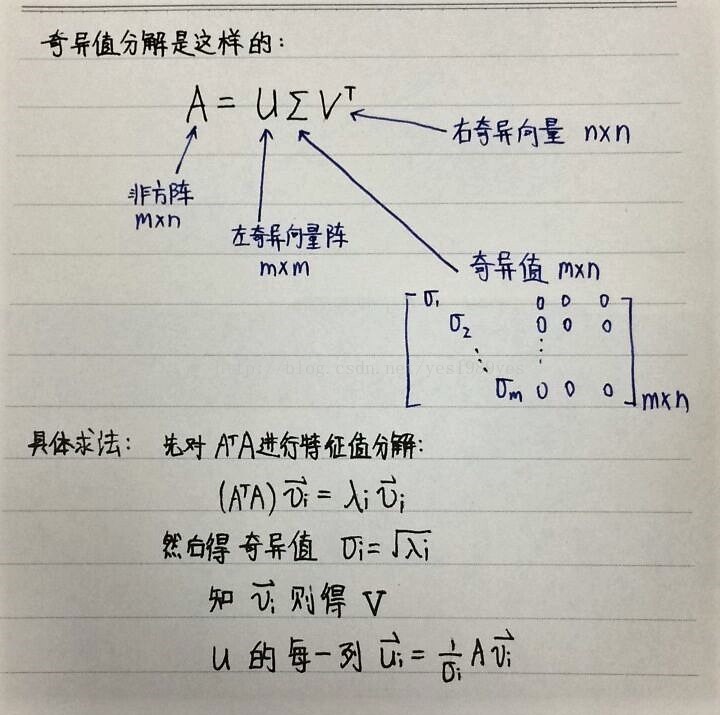 奇异值分解是这样的:
A = U Σ Vᵀ
右奇异向量 n×n
非方阵
m×n
左奇异向量阵
m×m
奇异值 m×n
σ₁ 0 0 0
σ₂ 0 0 0
⋱ ⋮
σₘ 0 0 0 m×n
http://blog.csdn.net/yes1989yes
具体求法: 先对 AᵀA进行特征值分解:
(AᵀA) v⃗ᵢ = λᵢ v⃗ᵢ
然后得 奇异值 σᵢ=√λᵢ
知 v⃗ᵢ 则得 V
U 的每一列 u⃗ᵢ = 1/σᵢ A v⃗ᵢ